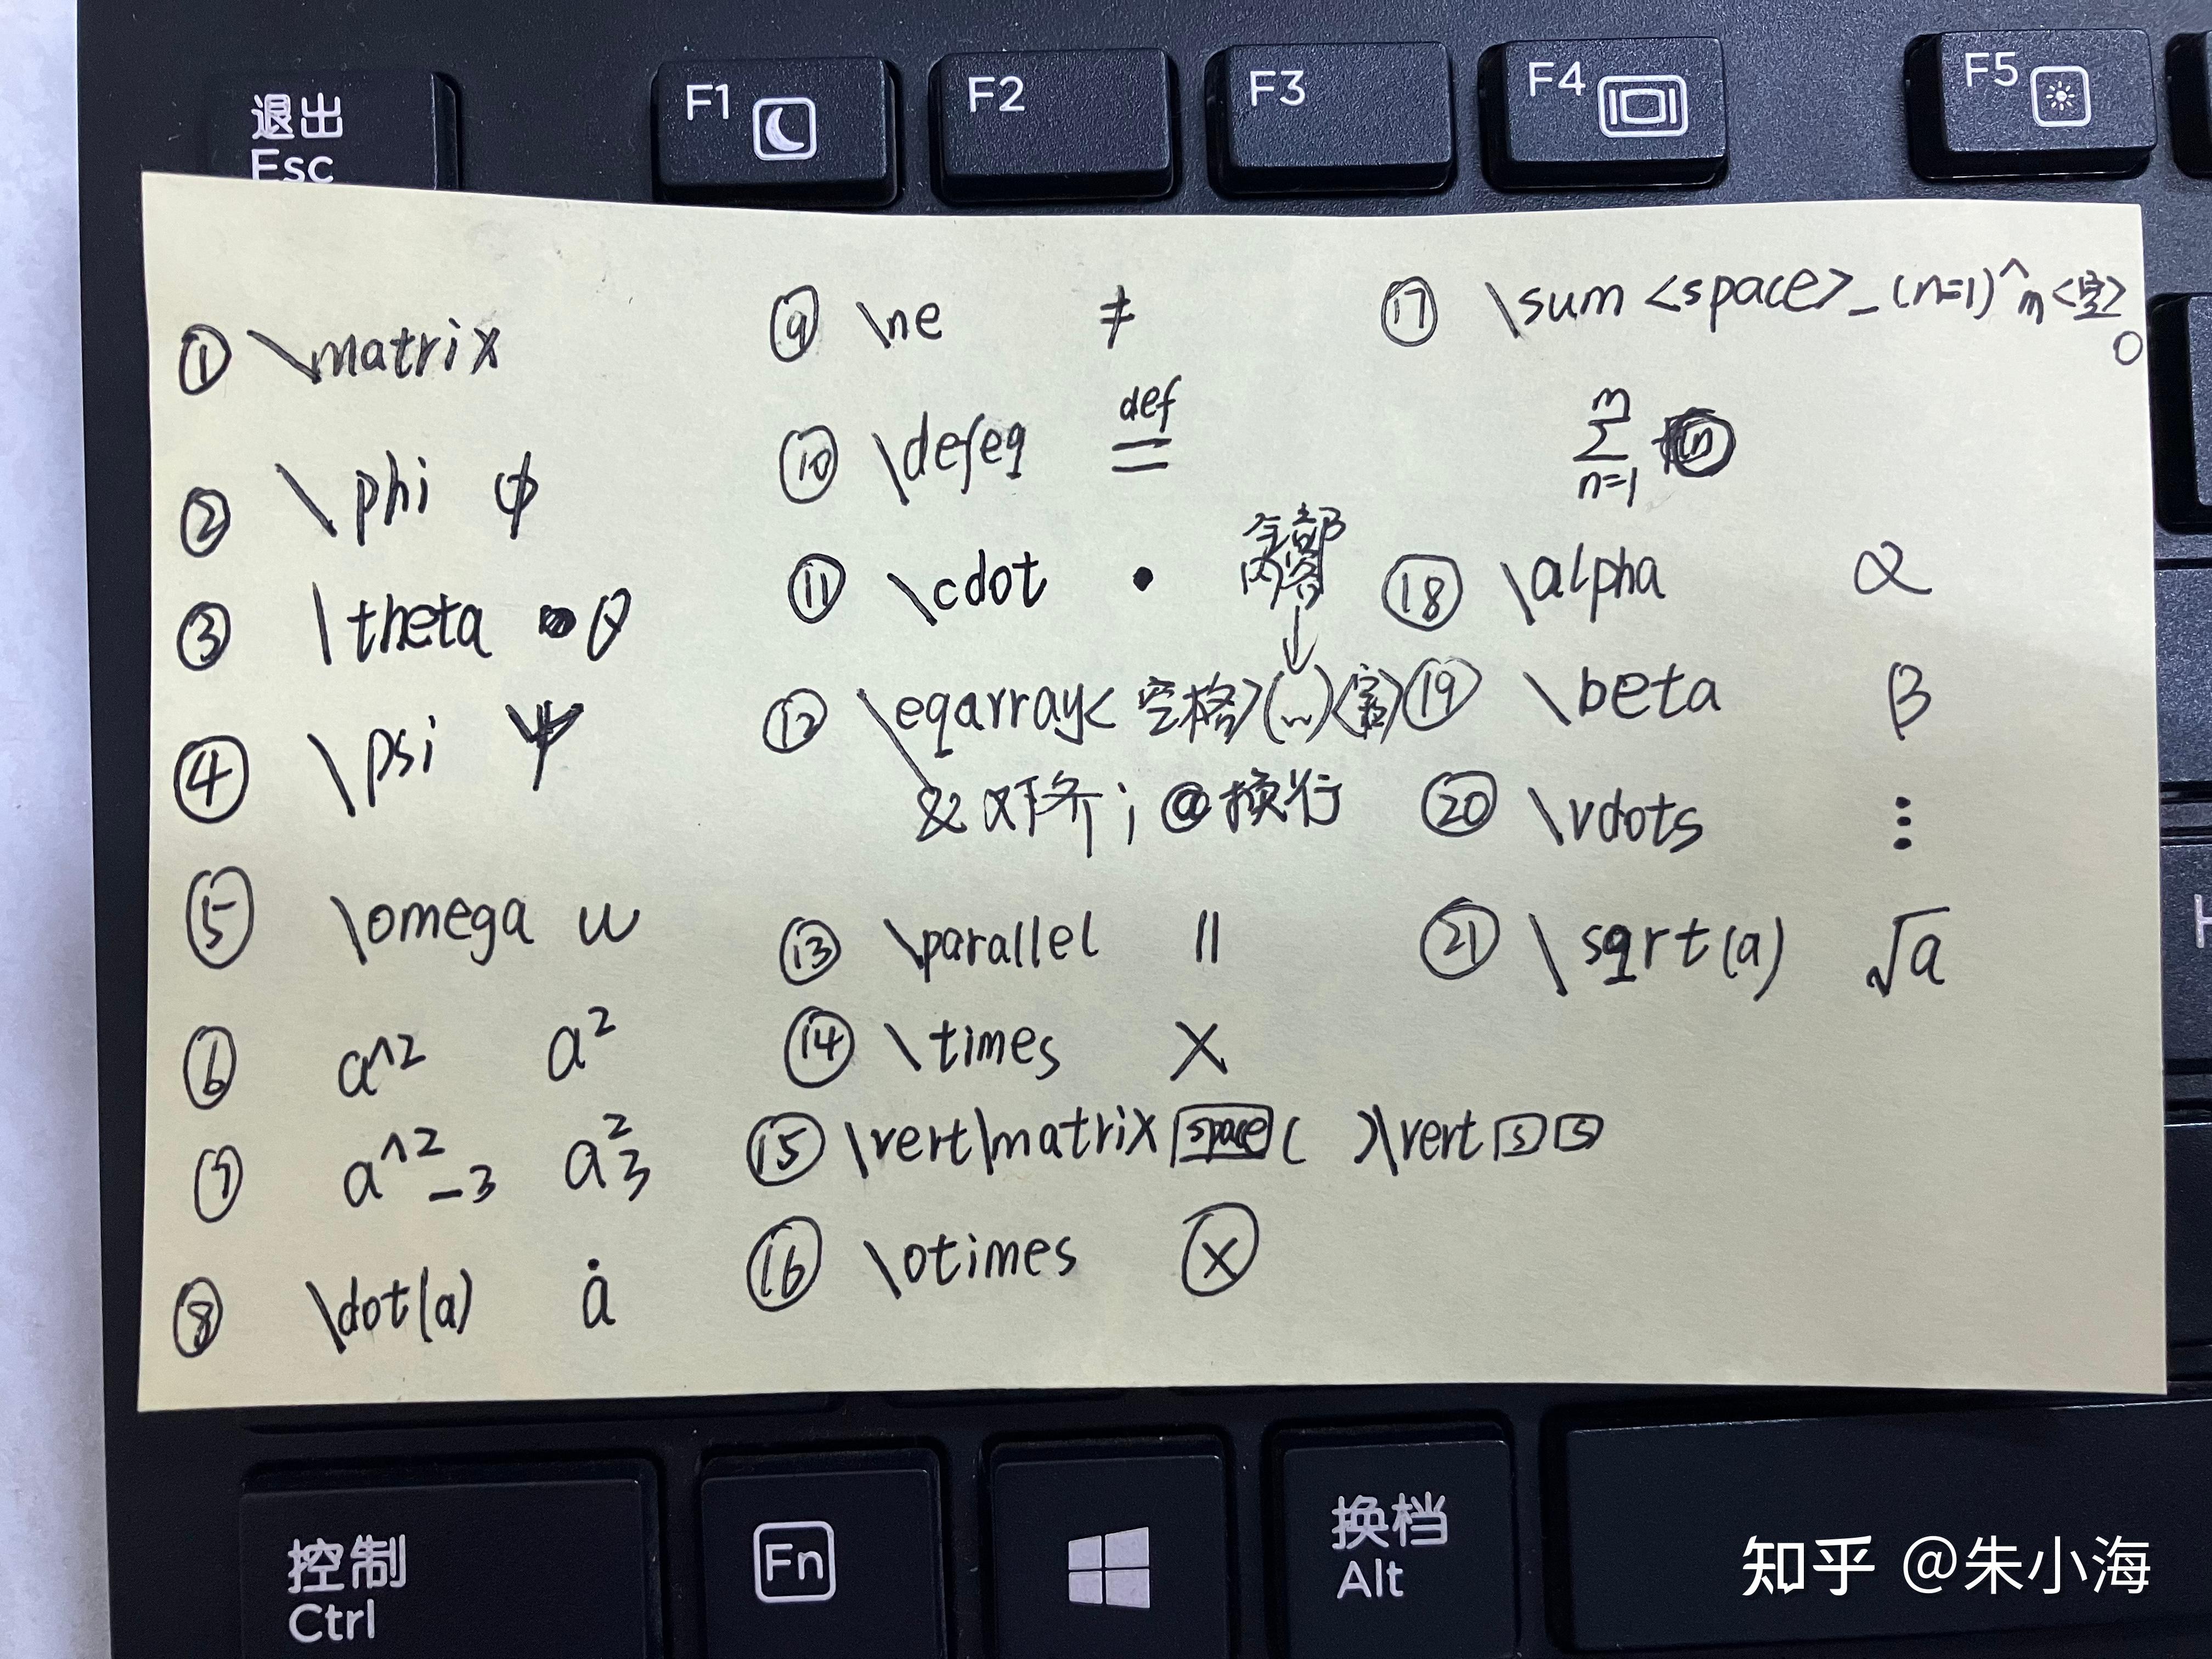 退出
Esc
F1
F2
F3
F4
F5
① \matrix
② \phi φ
③ \theta θ
④ \psi ψ
⑤ \omega ω
⑥ a^2 a²
⑦ a^2_3 a²₃
⑧ \dot(a) ȧ
⑨ \ne ≠
⑩ \defeq ≝
⑪ \cdot ·
全部
内容
↓
⑫ \eqarray<空格>(...)<空格>
& 对齐; @换行
⑬ \parallel ∥
⑭ \times ×
⑮ \vert\matrix space ( )\vert s s
⑯ \otimes ⊗
⑰ \sum <space>_(n=1)^m<空>
m
∑
n=1
⑱ \alpha α
⑲ \beta β
⑳ \vdots ⋮
㉑ \sqrt(a) √a
控制
Ctrl
Fn
换档
Alt
知乎 @朱小海